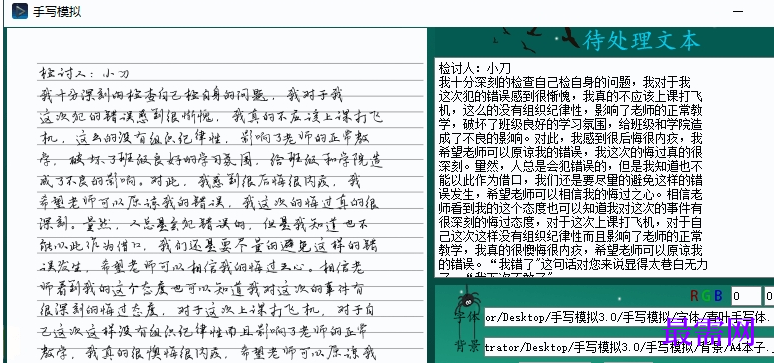 手写模拟
检讨人：小刀
我十分深刻的检查自己检自身的问题，我对于我
这次犯的错误感到很惭愧，我真的不应该上课打飞
机，这么的没有组织纪律性，影响了老师的正常教
学，破坏了班级良好的学习氛围，给班级和学院造
成了不良的影响。对此，我感到很后悔很内疚，我
希望老师可以原谅我的错误，我这次的悔过真的很
深刻。虽然，人总是会犯错误的，但是我知道也不
能以此作为借口，我们还是要尽量的避免这样的错
误发生，希望老师可以相信我的悔过之心。相信老
师看到我的这个态度也可以知道我对这次的事件有
很深刻的悔过态度，对于这次上课打飞机，对于自
己这次这样没有组织纪律性而且影响了老师的正常
教学，我真的很懊悔很内疚，希望老师可以原谅我
待处理文本
检讨人：小刀
我十分深刻的检查自己检自身的问题，我对于我
这次犯的错误感到很惭愧，我真的不应该上课打飞
机，这么的没有组织纪律性，影响了老师的正常教
学，破坏了班级良好的学习氛围，给班级和学院造
成了不良的影响。对此，我感到很后悔很内疚，我
希望老师可以原谅我的错误，我这次的悔过真的很
深刻。虽然，人总是会犯错误的，但是我知道也不
能以此作为借口，我们还是要尽量的避免这样的错
误发生，希望老师可以相信我的悔过之心。相信老
师看到我的这个态度也可以知道我对这次的事件有
很深刻的悔过态度，对于这次上课打飞机，对于自
己这次这样没有组织纪律性而且影响了老师的正常
教学，我真的很懊悔很内疚，希望老师可以原谅我
的错误。“我错了”这句话对您来说显得太苍白无力
RGB 0 0
字体 or/Desktop/手写模拟3.0/手写模拟/字体/青叶手写体.
背景 trator/Desktop/手写模拟/背景/A4本子..
最需网